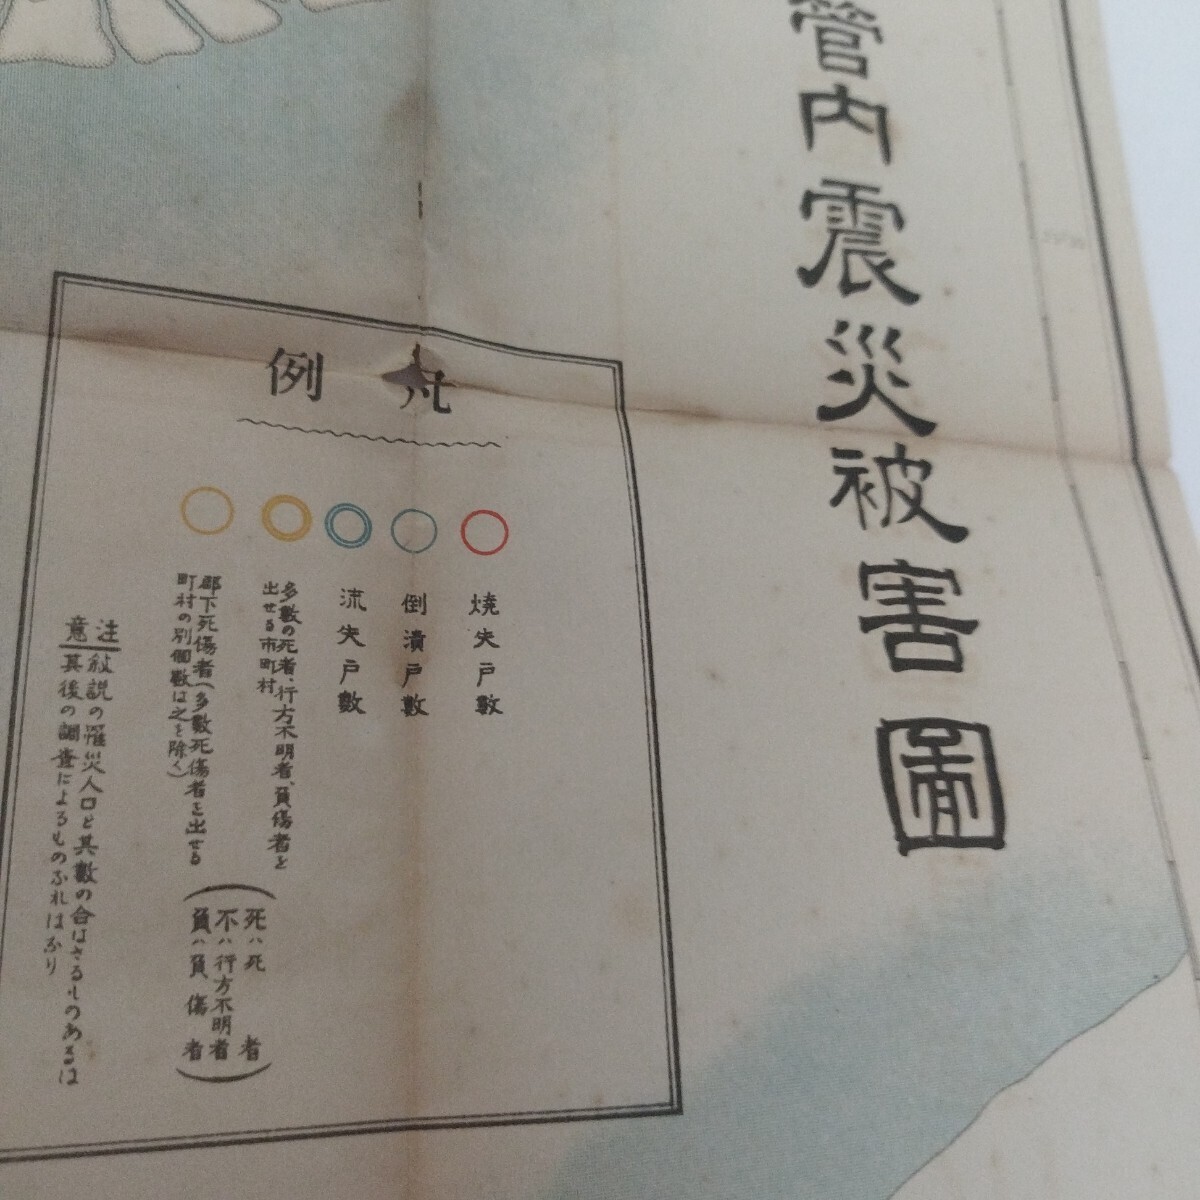 管内震災被害圖
凡例
燒失戸數
倒潰戸數
流失戸數
多數の死者、行方不明者、負傷者を
出せる市町村
郡下死傷者(多數死傷者を出せる
町村の別個數は之を除く)
(死ハ死者
不ハ行方不明者
負ハ負傷者)
注意
敍説の罹災人口と其數の合はさるものあるは
其後の調査によるものなれはなり